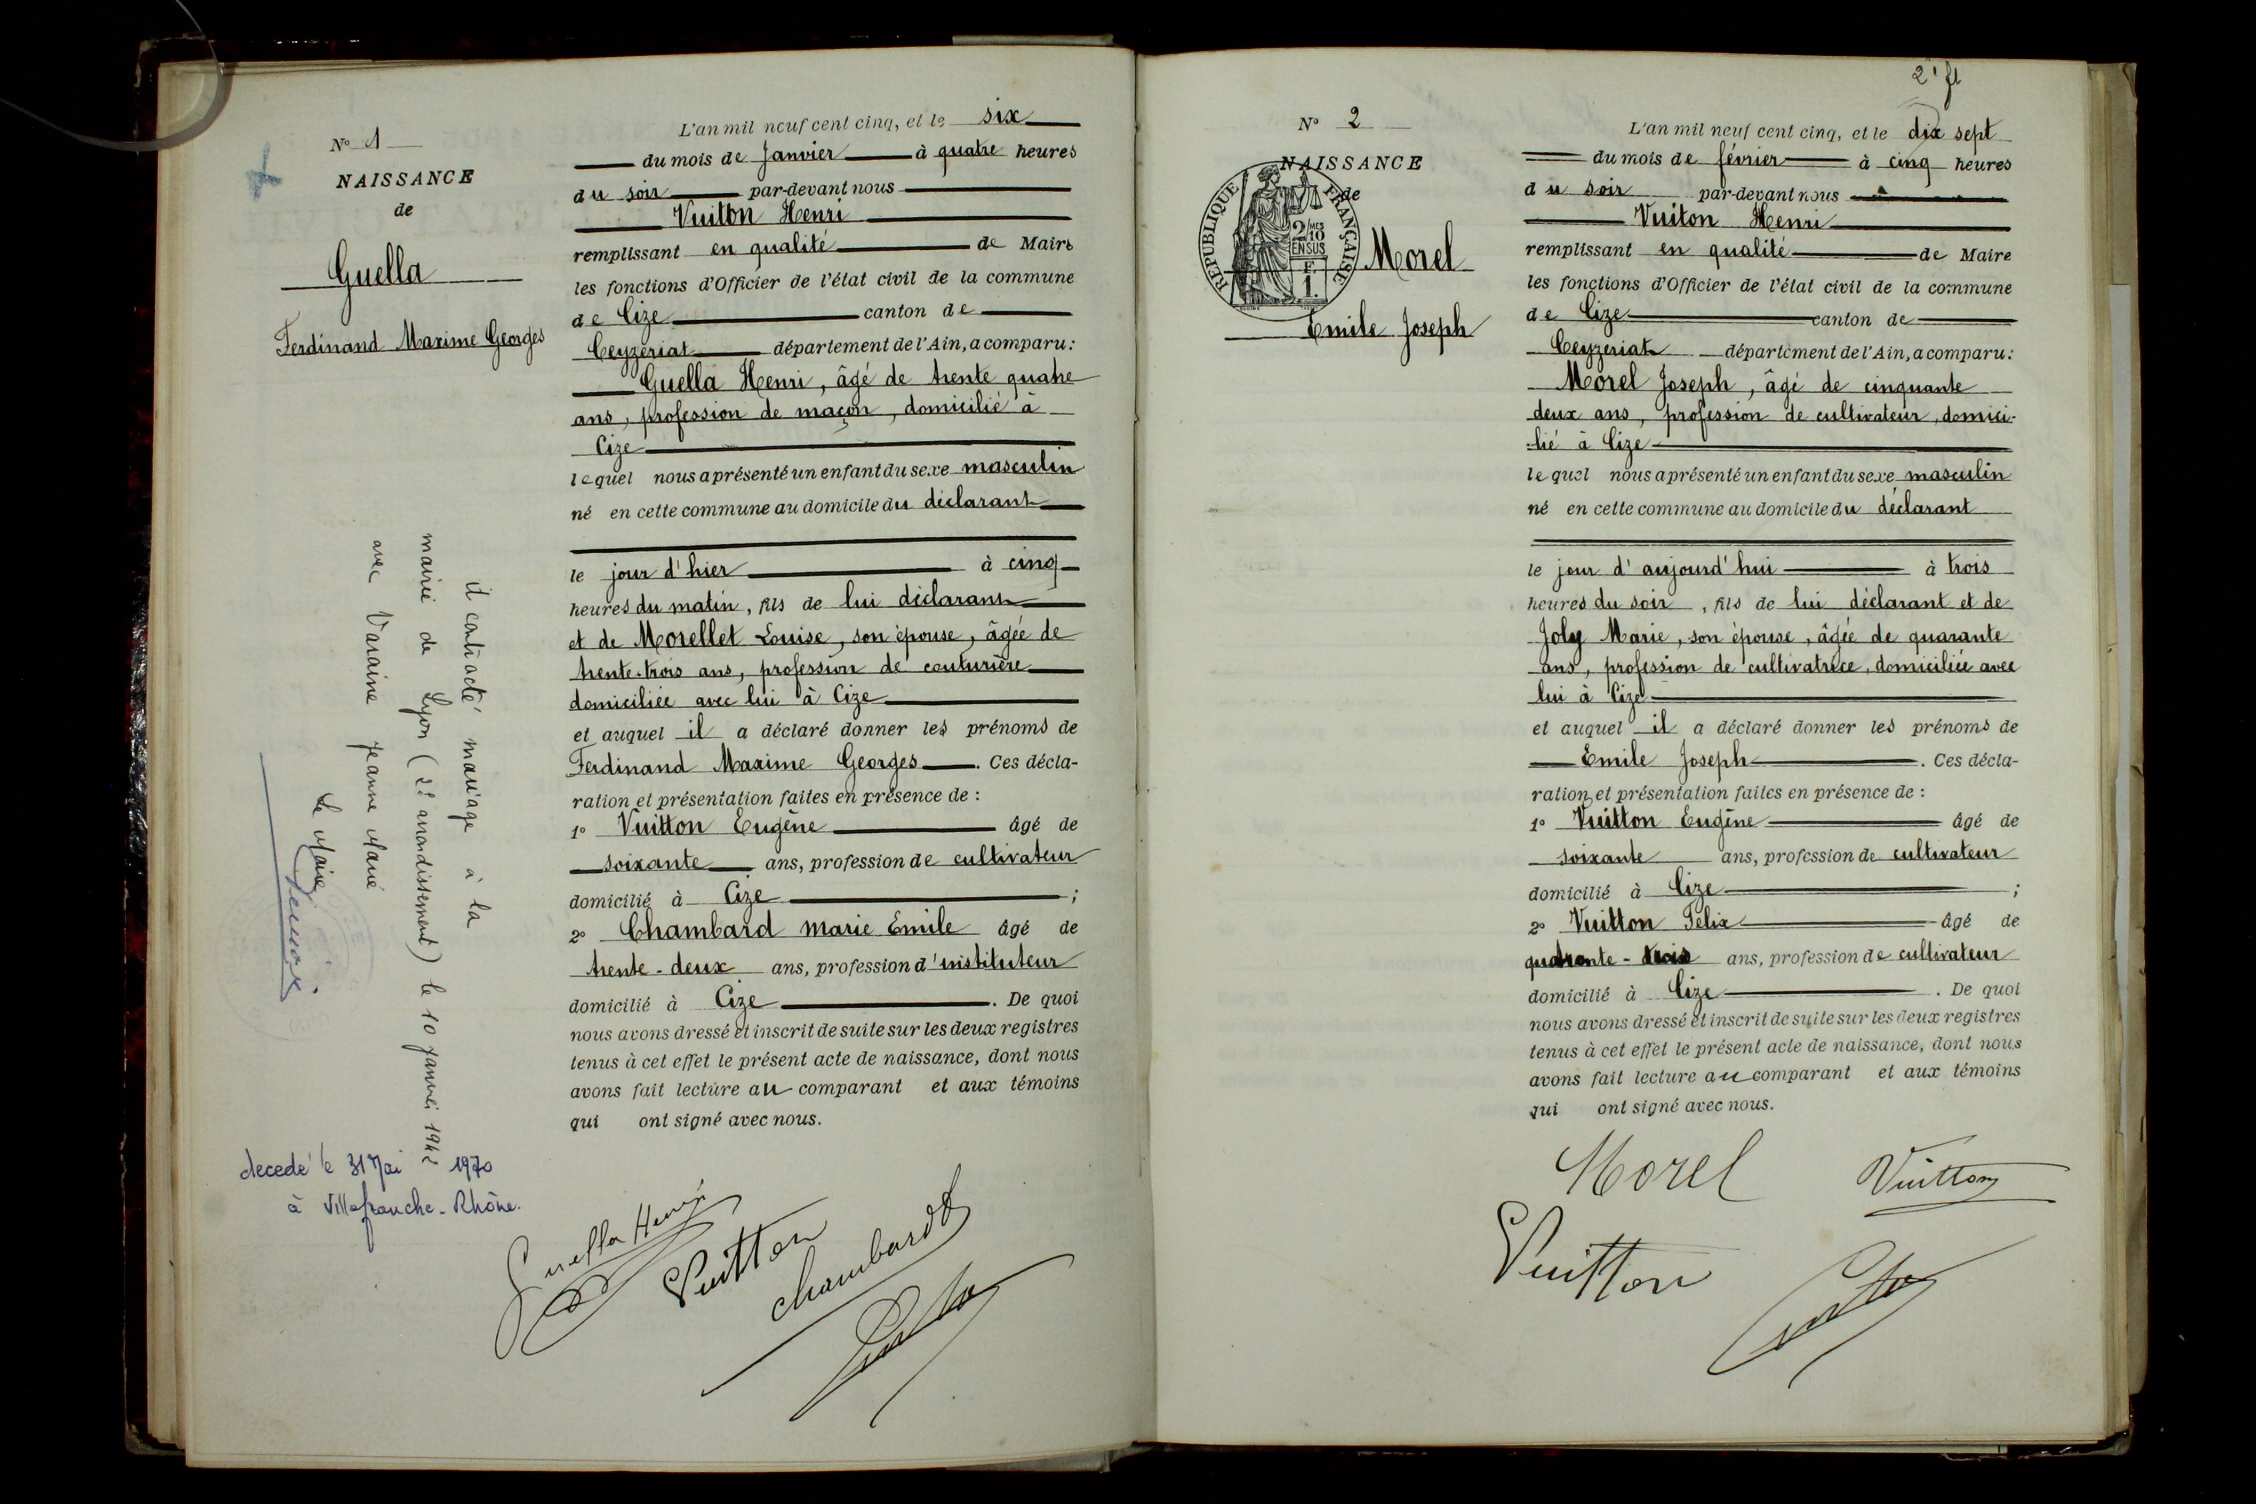 Nº 1
NAISSANCE
de
Guella
Ferdinand Maxime Georges
L'an mil neuf cent cinq, et le six
du mois de Janvier à quatre heures
du soir par-devant nous
Vuitton Henri
remplissant en qualité de Maire
les fonctions d'Officier de l'état civil de la commune
de Cize canton de
Ceyzeriat département de l'Ain, a comparu:
Guella Henri, âgé de trente quatre
ans, profession de maçon, domicilié à
Cize
lequel nous a présenté un enfant du sexe masculin
né en cette commune au domicile du déclarant
le jour d'hier à cinq
heures du matin, fils de lui déclarant
et de Morellet Louise, son épouse, âgée de
trente-trois ans, profession de couturière
domiciliée avec lui à Cize
et auquel il a déclaré donner les prénoms de
Ferdinand Maxime Georges. Ces décla-
ration et présentation faites en présence de:
1º Vuitton Eugène âgé de
soixante ans, profession de cultivateur
domicilié à Cize;
2º Chambard Marie Emile âgé de
trente-deux ans, profession d'instituteur
domicilié à Cize. De quoi
nous avons dressé et inscrit de suite sur les deux registres
tenus à cet effet le présent acte de naissance, dont nous
avons fait lecture au comparant et aux témoins
qui ont signé avec nous.
Guella Henri
Vuitton
Chambard
il a contracté mariage à la
mairie de Lyon (2e arrondissement) le 10 janvier 1942
avec Varaine Jeanne Marie
Le Maire
décédé le 31 Mai 1970
à Villefranche-Rhône.
2e ft
Nº 2
NAISSANCE
de
REPUBLIQUE FRANÇAISE
2/10 MES
EN SUS
F.
1.
Morel
Emile Joseph
L'an mil neuf cent cinq, et le dix sept
du mois de février à cinq heures
du soir par-devant nous
Vuiton Henri
remplissant en qualité de Maire
les fonctions d'Officier de l'état civil de la commune
de Cize canton de
Ceyzeriat département de l'Ain, a comparu:
Morel Joseph, âgé de cinquante
deux ans, profession de cultivateur, domici-
lié à Cize
lequel nous a présenté un enfant du sexe masculin
né en cette commune au domicile du déclarant
le jour d'aujourd'hui à trois
heures du soir, fils de lui déclarant et de
Joly Marie, son épouse, âgée de quarante
ans, profession de cultivatrice, domiciliée avec
lui à Cize
et auquel il a déclaré donner les prénoms de
Emile Joseph. Ces décla-
ration et présentation faites en présence de:
1º Vuitton Eugène âgé de
soixante ans, profession de cultivateur
domicilié à Cize;
2º Vuitton Felix âgé de
quarante-trois ans, profession de cultivateur
domicilié à Cize. De quoi
nous avons dressé et inscrit de suite sur les deux registres
tenus à cet effet le présent acte de naissance, dont nous
avons fait lecture au comparant et aux témoins
qui ont signé avec nous.
Morel
Vuitton
Vuitton